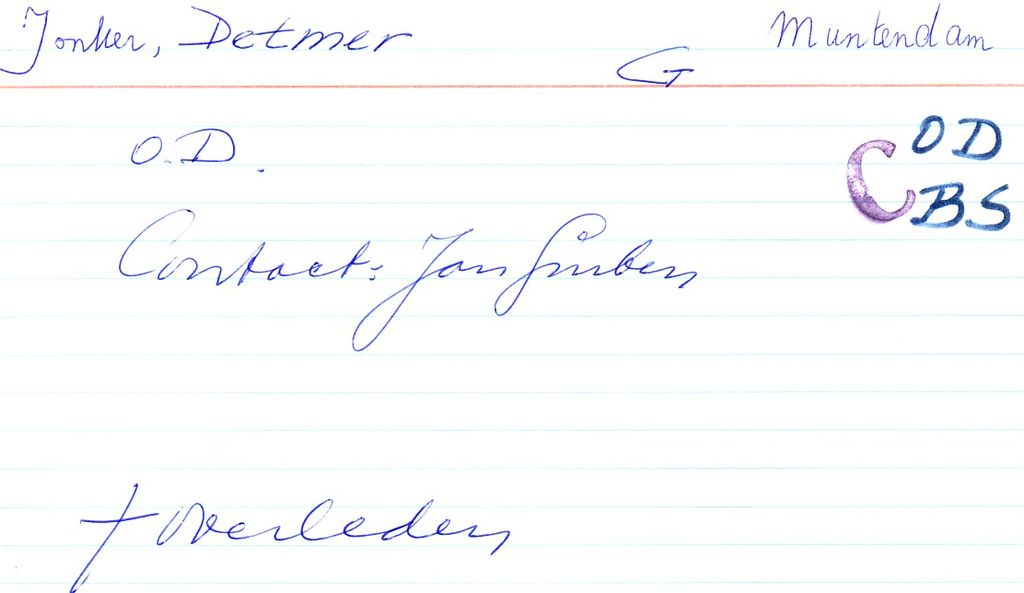 Jonker, Detmer
Muntendam
G
O.D.
C OD
BS
Contact: Jan
+ Overleden